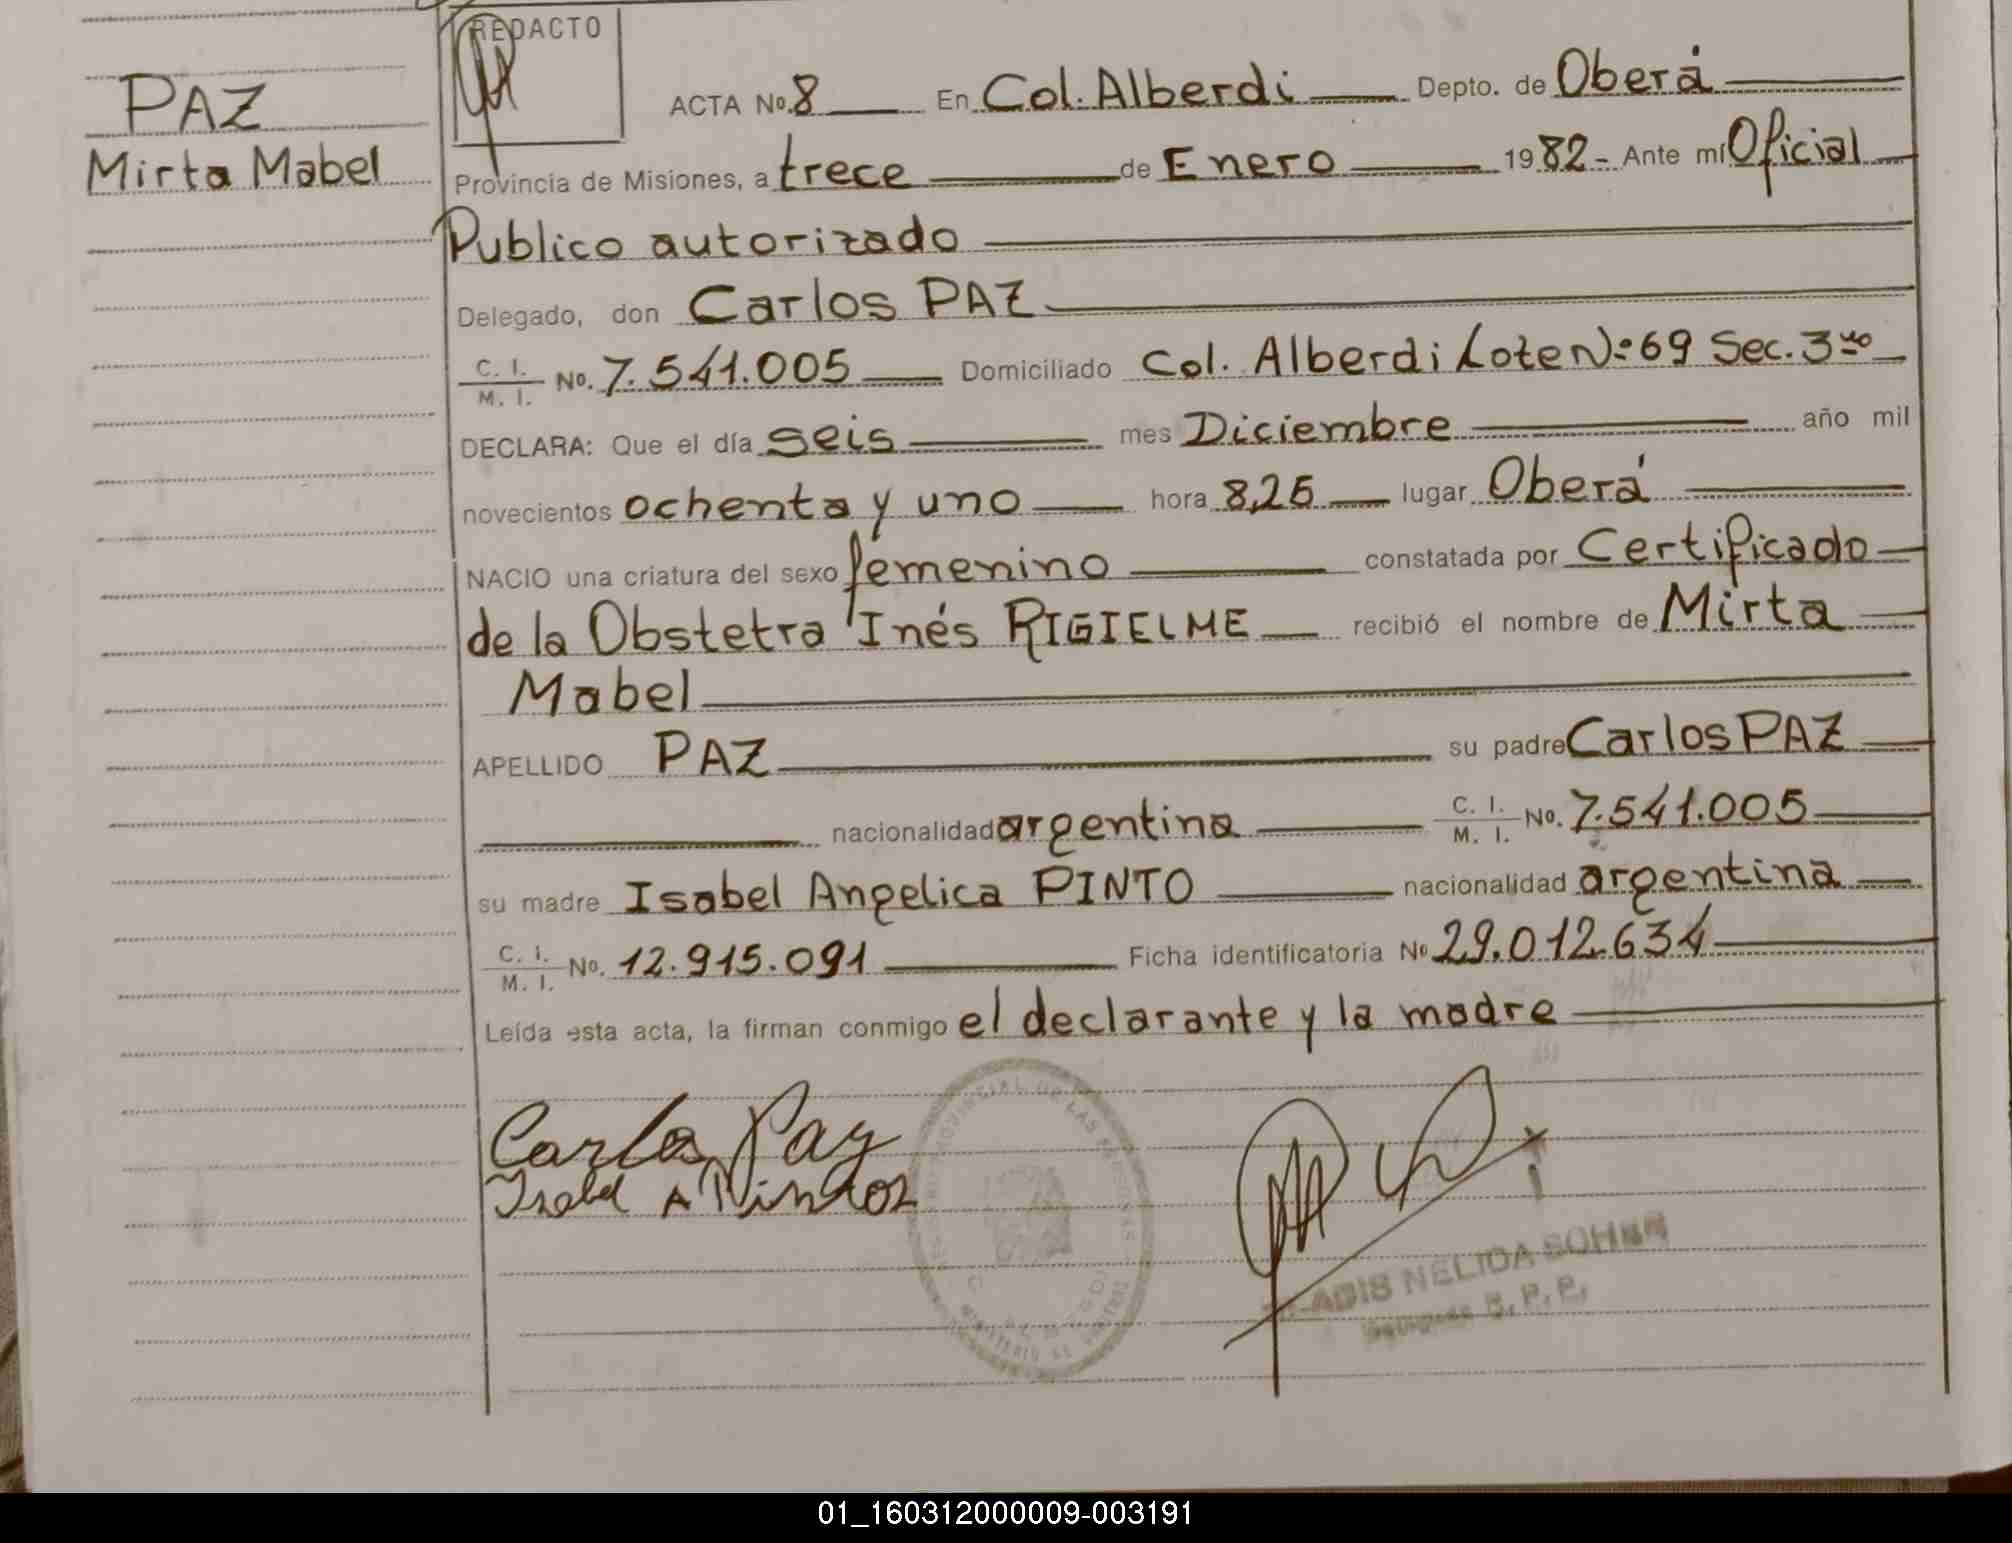 REDACTO
PAZ
Mirta Mabel
ACTA No. 8 En Col. Alberdi Depto. de Oberá
Provincia de Misiones, a trece de Enero 1982- Ante mí Oficial
Publico autorizado
Delegado, don Carlos PAZ
C. I. / M. I. No. 7.541.005 Domiciliado Col. Alberdi Lote Nº 69 Sec. 3ra
DECLARA: Que el día seis mes Diciembre año mil
novecientos ochenta y uno hora 8,25 lugar Oberá
NACIO una criatura del sexo femenino constatada por Certificado
de la Obstetra Inés RIGIELME recibió el nombre de Mirta
Mabel
APELLIDO PAZ su padre Carlos PAZ
nacionalidad argentina C. I. / M. I. No. 7.541.005
su madre Isabel Angelica PINTO nacionalidad argentina
C. I. / M. I. No. 12.915.091 Ficha identificatoria No 29.012.634
Leída esta acta, la firman conmigo el declarante y la madre
Carlos Paz
Isabel A
NELIDA
R. P. P.
01_160312000009-003191